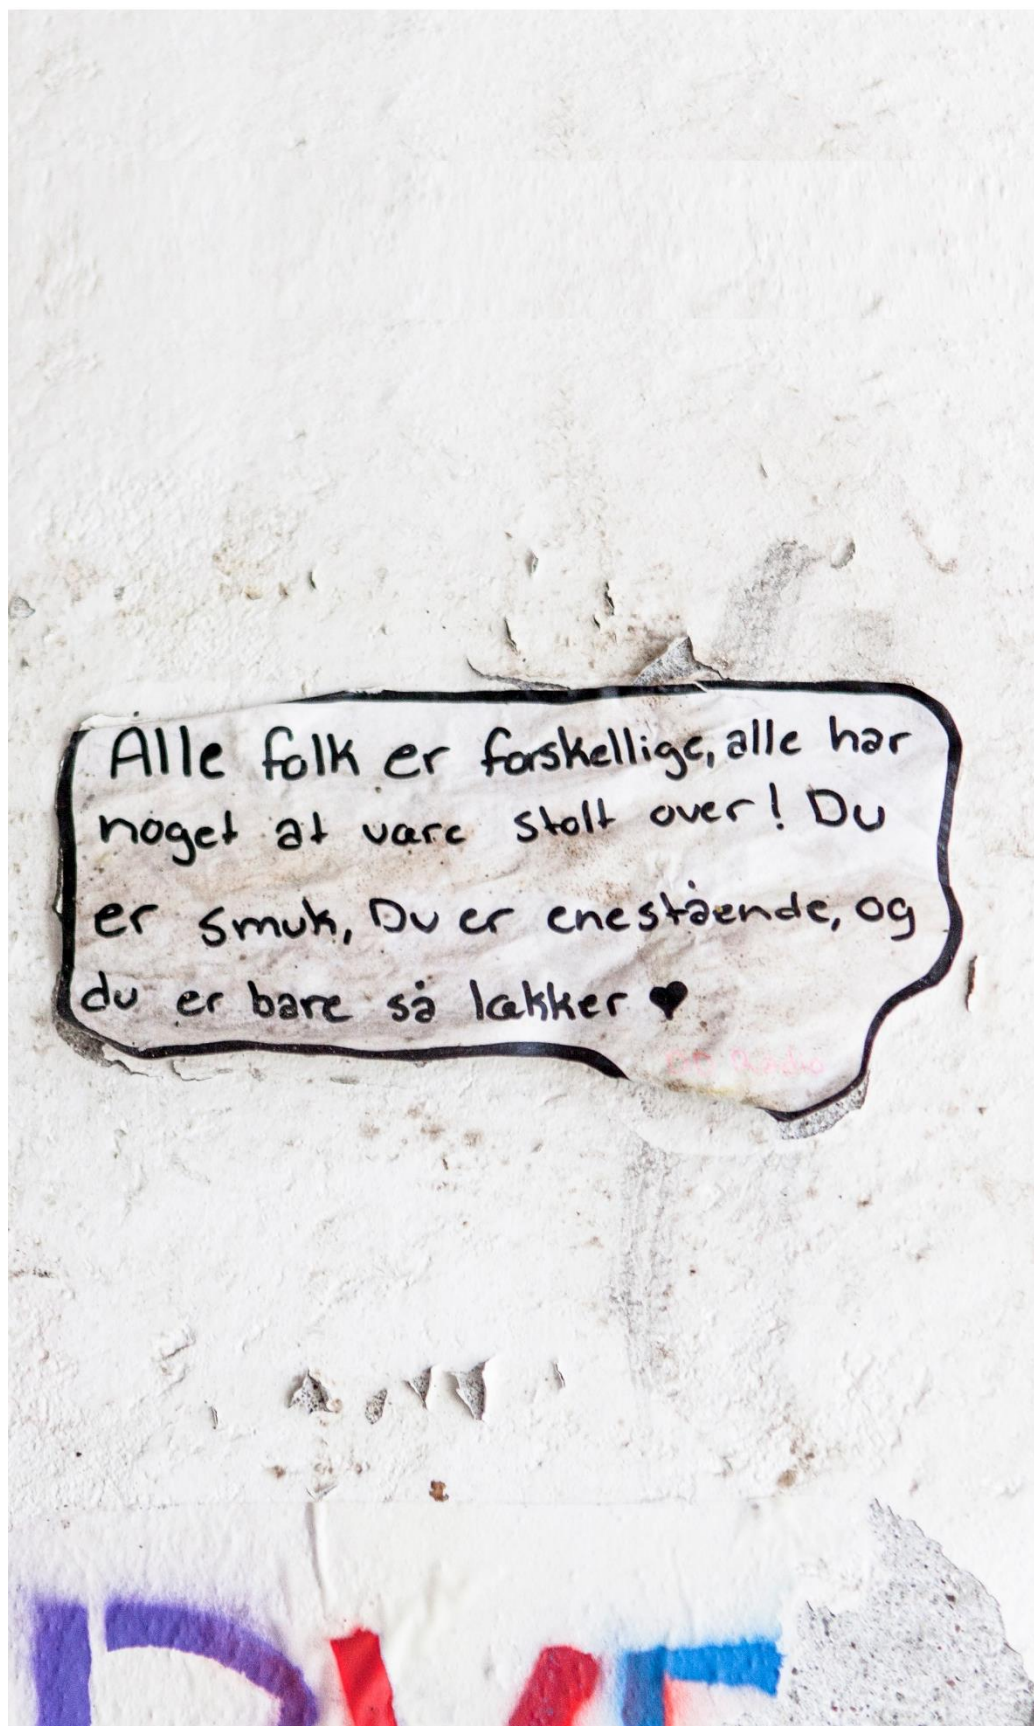 Alle folk er forskellige, alle har
noget at være stolt over! Du
er smuk, Du er enestående, og
du er bare så lækker ♥